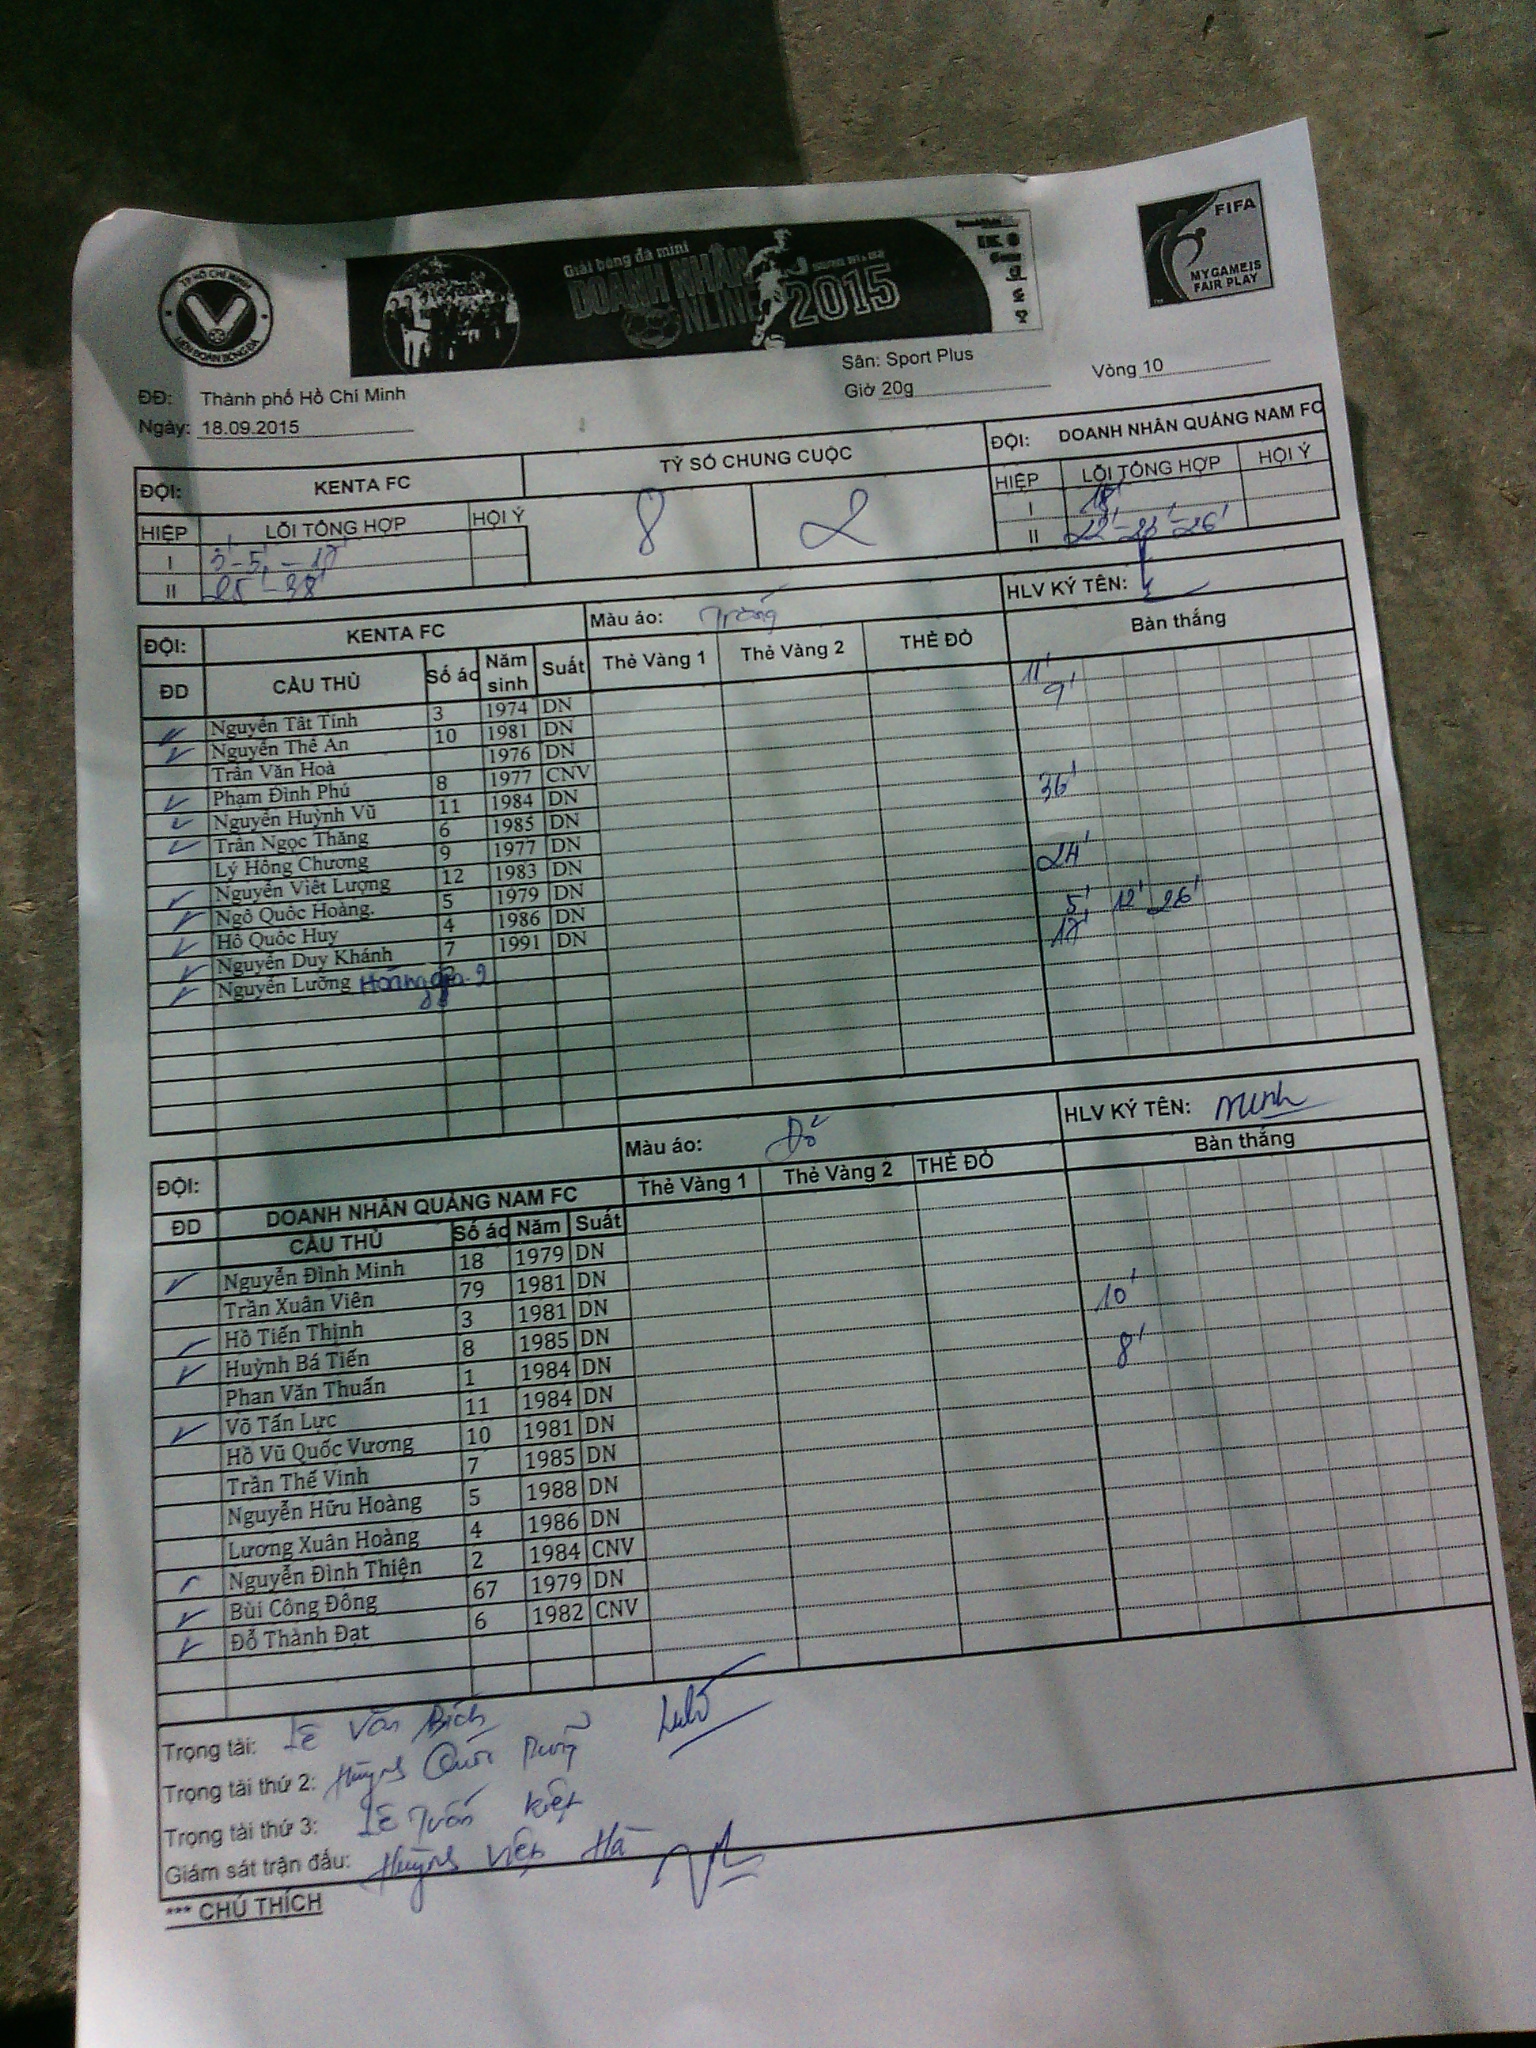 TP HỒ CHÍ MINH
LIÊN ĐOÀN BÓNG ĐÁ
Giải bóng đá mini
DOANH NHÂN
ONLINE 2015
FIFA
MYGAMEIS
FAIR PLAY
Sân: Sport Plus
ĐĐ: Thành phố Hồ Chí Minh Giờ 20g Vòng 10
Ngày: 18.09.2015
ĐỘI: KENTA FC TỶ SỐ CHUNG CUỘC ĐỘI: DOANH NHÂN QUẢNG NAM FC
HIỆP LỖI TỔNG HỢP HỘI Ý 8 2 HIỆP LỖI TỔNG HỢP HỘI Ý
I 3'-5'-17' I 18'
II 25'-38' II 22'-23'-26'
ĐỘI: KENTA FC Màu áo: Trắng HLV KÝ TÊN:
ĐD CẦU THỦ Số áo Năm sinh Suất Thẻ Vàng 1 Thẻ Vàng 2 THẺ ĐỎ Bàn thắng
Nguyễn Tất Tính 3 1974 DN 11'
Nguyễn Thế An 10 1981 DN 9'
Trần Văn Hoà 1976 DN
Phạm Đình Phú 8 1977 CNV
Nguyễn Huỳnh Vũ 11 1984 DN 36'
Trần Ngọc Thăng 6 1985 DN
Lý Hồng Chương 9 1977 DN
Nguyễn Viết Lượng 12 1983 DN 24'
Ngô Quốc Hoàng. 5 1979 DN
Hồ Quốc Huy 4 1986 DN 5' 12' 26'
Nguyễn Duy Khánh 7 1991 DN 17'
Nguyễn Lưỡng Hoàng
Màu áo: Đỏ HLV KÝ TÊN: Minh
ĐỘI: DOANH NHÂN QUẢNG NAM FC Thẻ Vàng 1 Thẻ Vàng 2 THẺ ĐỎ Bàn thắng
ĐD CẦU THỦ Số áo Năm Suất
Nguyễn Đình Minh 18 1979 DN
Trần Xuân Viên 79 1981 DN
Hồ Tiến Thịnh 3 1981 DN 10'
Huỳnh Bá Tiến 8 1985 DN
Phan Văn Thuấn 1 1984 DN 8'
Võ Tấn Lực 11 1984 DN
Hồ Vũ Quốc Vương 10 1981 DN
Trần Thế Vinh 7 1985 DN
Nguyễn Hữu Hoàng 5 1988 DN
Lương Xuân Hoàng 4 1986 DN
Nguyễn Đình Thiện 2 1984 CNV
Bùi Công Đông 67 1979 DN
Đỗ Thành Đạt 6 1982 CNV
Trọng tài: Lê Văn Bích
Trọng tài thứ 2: Huỳnh Quốc
Trọng tài thứ 3: Lê Tuấn Kiệt
Giám sát trận đấu: Huỳnh Việt Hà
*** CHÚ THÍCH